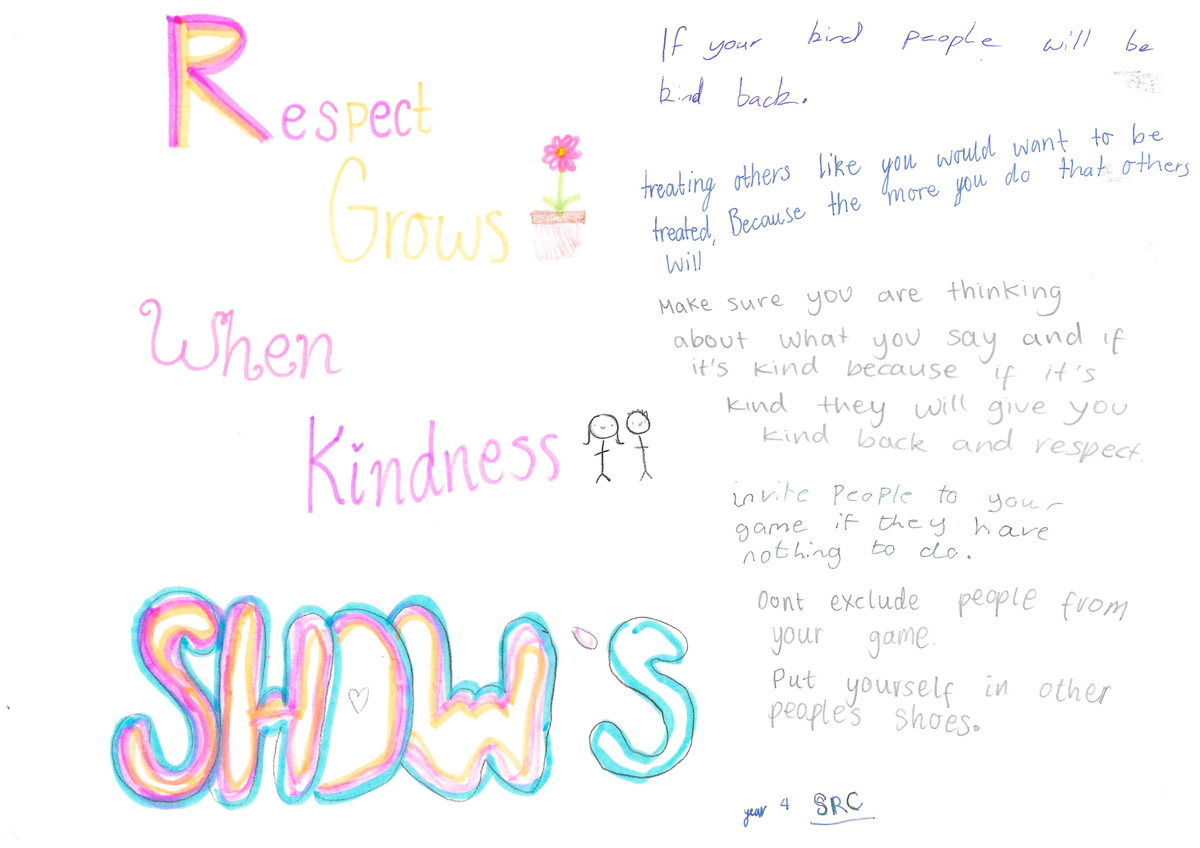 Respect
Grows
When
Kindness
SHOW'S
If your kind people will be
kind back.
treating others like you would want to be
treated, Because the more you do that others
will
Make sure you are thinking
about what you say and if
it's kind because if it's
kind they will give you
kind back and respect.
invite people to your
game if they have
nothing to do.
Dont exclude people from
your game.
Put yourself in other
people's shoes.
year 4 SRC